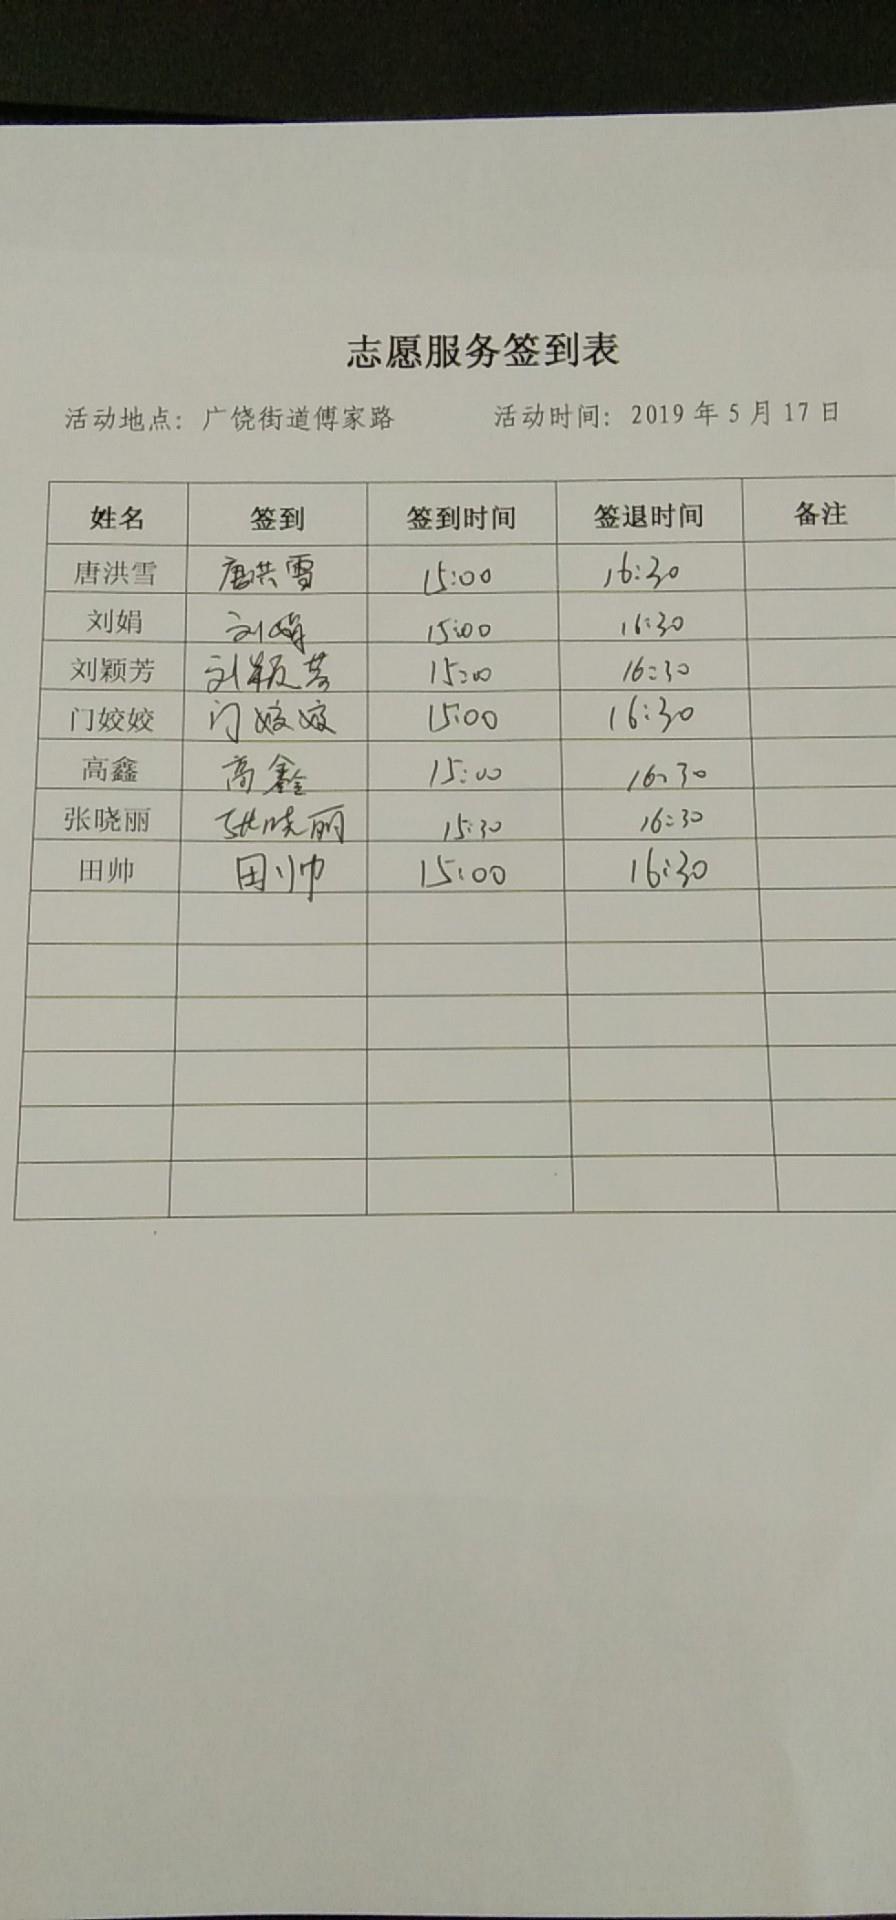 志愿服务签到表
活动地点：广饶街道傅家路 活动时间：2019 年 5 月 17 日
姓名 签到 签到时间 签退时间 备注
唐洪雪 唐洪雪 15:00 16:30
刘娟 刘娟 15:00 16:30
刘颖芳 刘颖芳 15:00 16:30
门姣姣 门姣姣 15:00 16:30
高鑫 高鑫 15:00 16:30
张晓丽 张晓丽 15:30 16:30
田帅 田帅 15:00 16:30